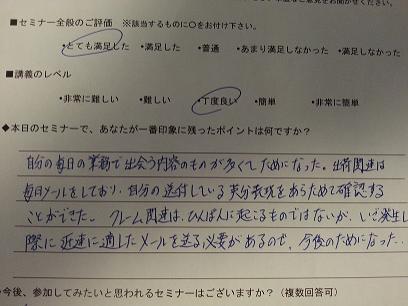 ■セミナー全般のご評価 ※該当するものに○をお付け下さい。
•とても満足した •満足した •普通 •あまり満足しなかった •満足しなかった
■講義のレベル
•非常に難しい •難しい •丁度良い •簡単 •非常に簡単
◆本日のセミナーで、あなたが一番印象に残ったポイントは何ですか？
自分の毎日の業務で出会う内容のものが多くてためになった。出荷関連は
毎日メールをしており、自分の送付している英分表現をあらためて確認する
ことができた。クレーム関連は、ひんぱんに起こるものではないが、いざ発生し
際に 迅速に適したメールを送る必要があるので、今後のためになった．．
今後、参加してみたいと思われるセミナーはございますか？（複数回答可）